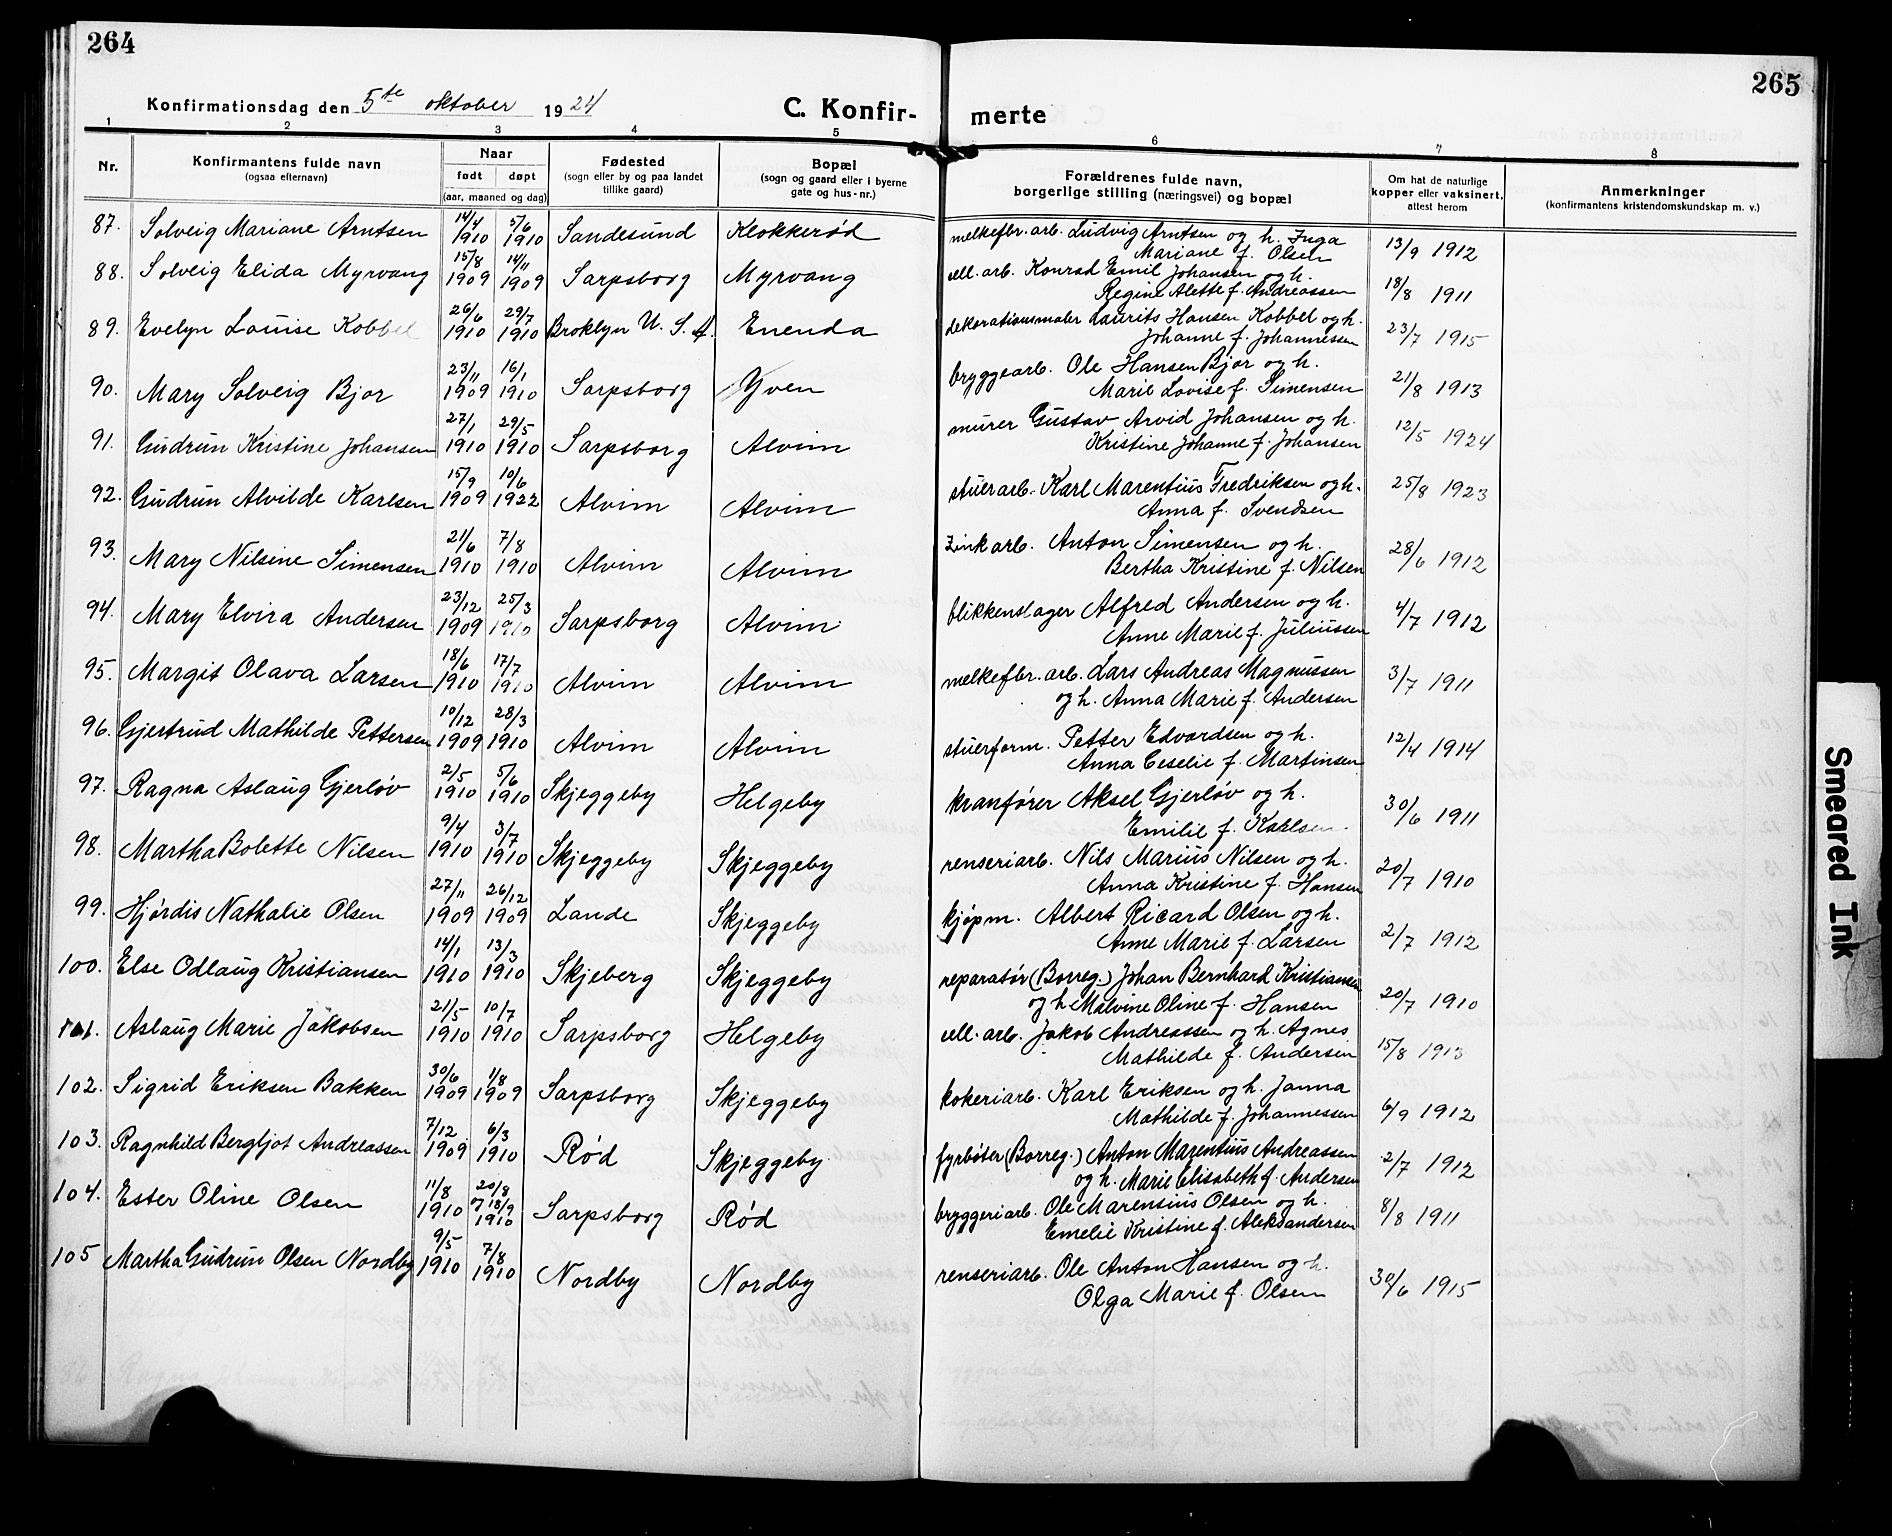 264
265
Konfirmationsdag den 5te oktober 1924
C. Konfir- merte
1 2 3 4 5 6 7 8
Nr.
Konfirmantens fulde navn
(ogsaa efternavn)
Naar
født døpt
(aar, maaned og dag)
Fødested
(sogn eller by og paa landet
tillike gaard)
Bopæl
(sogn og gaard eller i byerne
gate og hus-nr.)
Forældrenes fulde navn,
borgerlige stilling (næringsvei) og bopæl
Om hat de naturlige
kopper eller vaksinert,
attest herom
Anmerkninger
(konfirmantens kristendomskundskap m. v.)
87. Solveig Mariane Arntsen 14/4 1910 5/6 1910 Sandesund Klokkerød melkefbr. arb. Ludvig Arntsen og h. Inga
Mariane f. Olsen 13/9 1912
88. Solveig Elida Myrvang 15/8 1909 14/11 1909 Sarpsborg Myrvang cell. arb. Konrad Emil Johansen og h.
Regine Alette f. Andreassen 18/8 1911
89. Evelyn Louise Kobbel 26/6 1910 29/7 1910 Broklyn U. S. A. Enenda dekorationsmaler Laurits Hansen Kobbel og h.
Johanne f. Johannessen 23/7 1915
90. Mary Solveig Bjor 23/11 1909 16/1 1910 Sarpsborg Yven bryggearb. Ole Hansen Bjor og h.
Marie Lovise f. Simensen 21/8 1913
91. Gudrun Kristine Johansen 27/1 1910 29/5 1910 Sarpsborg Alvim murer Gustav Arvid Johansen og h.
Kristine Johanne f. Johansen 12/5 1924
92. Gudrun Alvilde Karlsen 15/9 1909 10/6 1922 Alvim Alvim stuerarb. Karl Marentius Fredriksen og h.
Anna f. Svendsen 25/8 1923
93. Mary Nilsine Simensen 21/6 1910 7/8 1910 Alvim Alvim Zinkarb. Anton Simensen og h.
Bertha Kristine f. Nilsen 28/6 1912
94. Mary Elvira Andersen 23/12 1909 25/3 1910 Sarpsborg Alvim blikkenslager Alfred Andersen og h.
Anne Marie f. Juliussen 4/7 1912
95. Margit Olava Larsen 18/6 1910 17/7 1910 Alvim Alvim melkefbr. arb. Lars Andreas Magnussen
og h. Anna Marie f. Andersen 3/7 1911
96. Gjertrud Mathilde Pettersen 10/12 1909 28/3 1910 Alvim Alvim stuerform. Petter Edvardsen og h.
Anna Ceselie f. Martinsen 12/4 1914
97. Ragna Aslaug Gjerløv 2/5 1910 5/6 1910 Skjeggeby Helgeby kranfører Aksel Gjerløv og h.
Emilie f. Karlsen 30/6 1911
98. Martha Bolette Nilsen 9/4 1910 3/7 1910 Skjeggeby Skjeggeby renseriarb. Nils Marius Nilsen og h.
Anna Kristine f. Hansen 20/7 1910
99. Hjørdis Nathalie Olsen 27/11 1909 26/12 1909 Lande Skjeggeby kjøpm. Albert Ricard Olsen og h.
Anne Marie f. Larsen 2/7 1912
100. Else Odlaug Kristiansen 14/1 1910 13/3 1910 Skjeberg Skjeggeby reparatør (Borreg.) Johan Bernhard Kristiansen
og h Malvine Oline f. Hansen 20/7 1910
101. Aslaug Marie Jakobsen 21/5 1910 10/7 1910 Sarpsborg Helgeby cell. arb. Jakob Andreassen og h. Agnes
Mathilde f. Andersen 15/8 1913
102. Sigrid Eriksen Bakken 30/6 1909 1/8 1909 Sarpsborg Skjeggeby kokeriarb. Karl Eriksen og h. Janna
Mathilde f. Johannessen 6/9 1912
103. Ragnhild Bergljot Andreassen 7/12 1909 6/3 1910 Rød Skjeggeby fyrbøter (Borreg.) Anton Marentius Andreassen
og h. Marie Elisabeth f. Andersen 2/7 1912
104. Ester Oline Olsen 11/8 1910 20/8 18/9 1910 Sarpsborg Rød bryggeriarb. Ole Marensius Olsen og h.
Emelie Kristine f. Aleksandersen 8/8 1911
105 Martha Gudrun Olsen Nordby 9/5 1910 7/8 1910 Nordby Nordby renseriarb. Ole Anton Hansen og h.
Olga Marie f. Olsen 30/6 1915
Smeared Ink